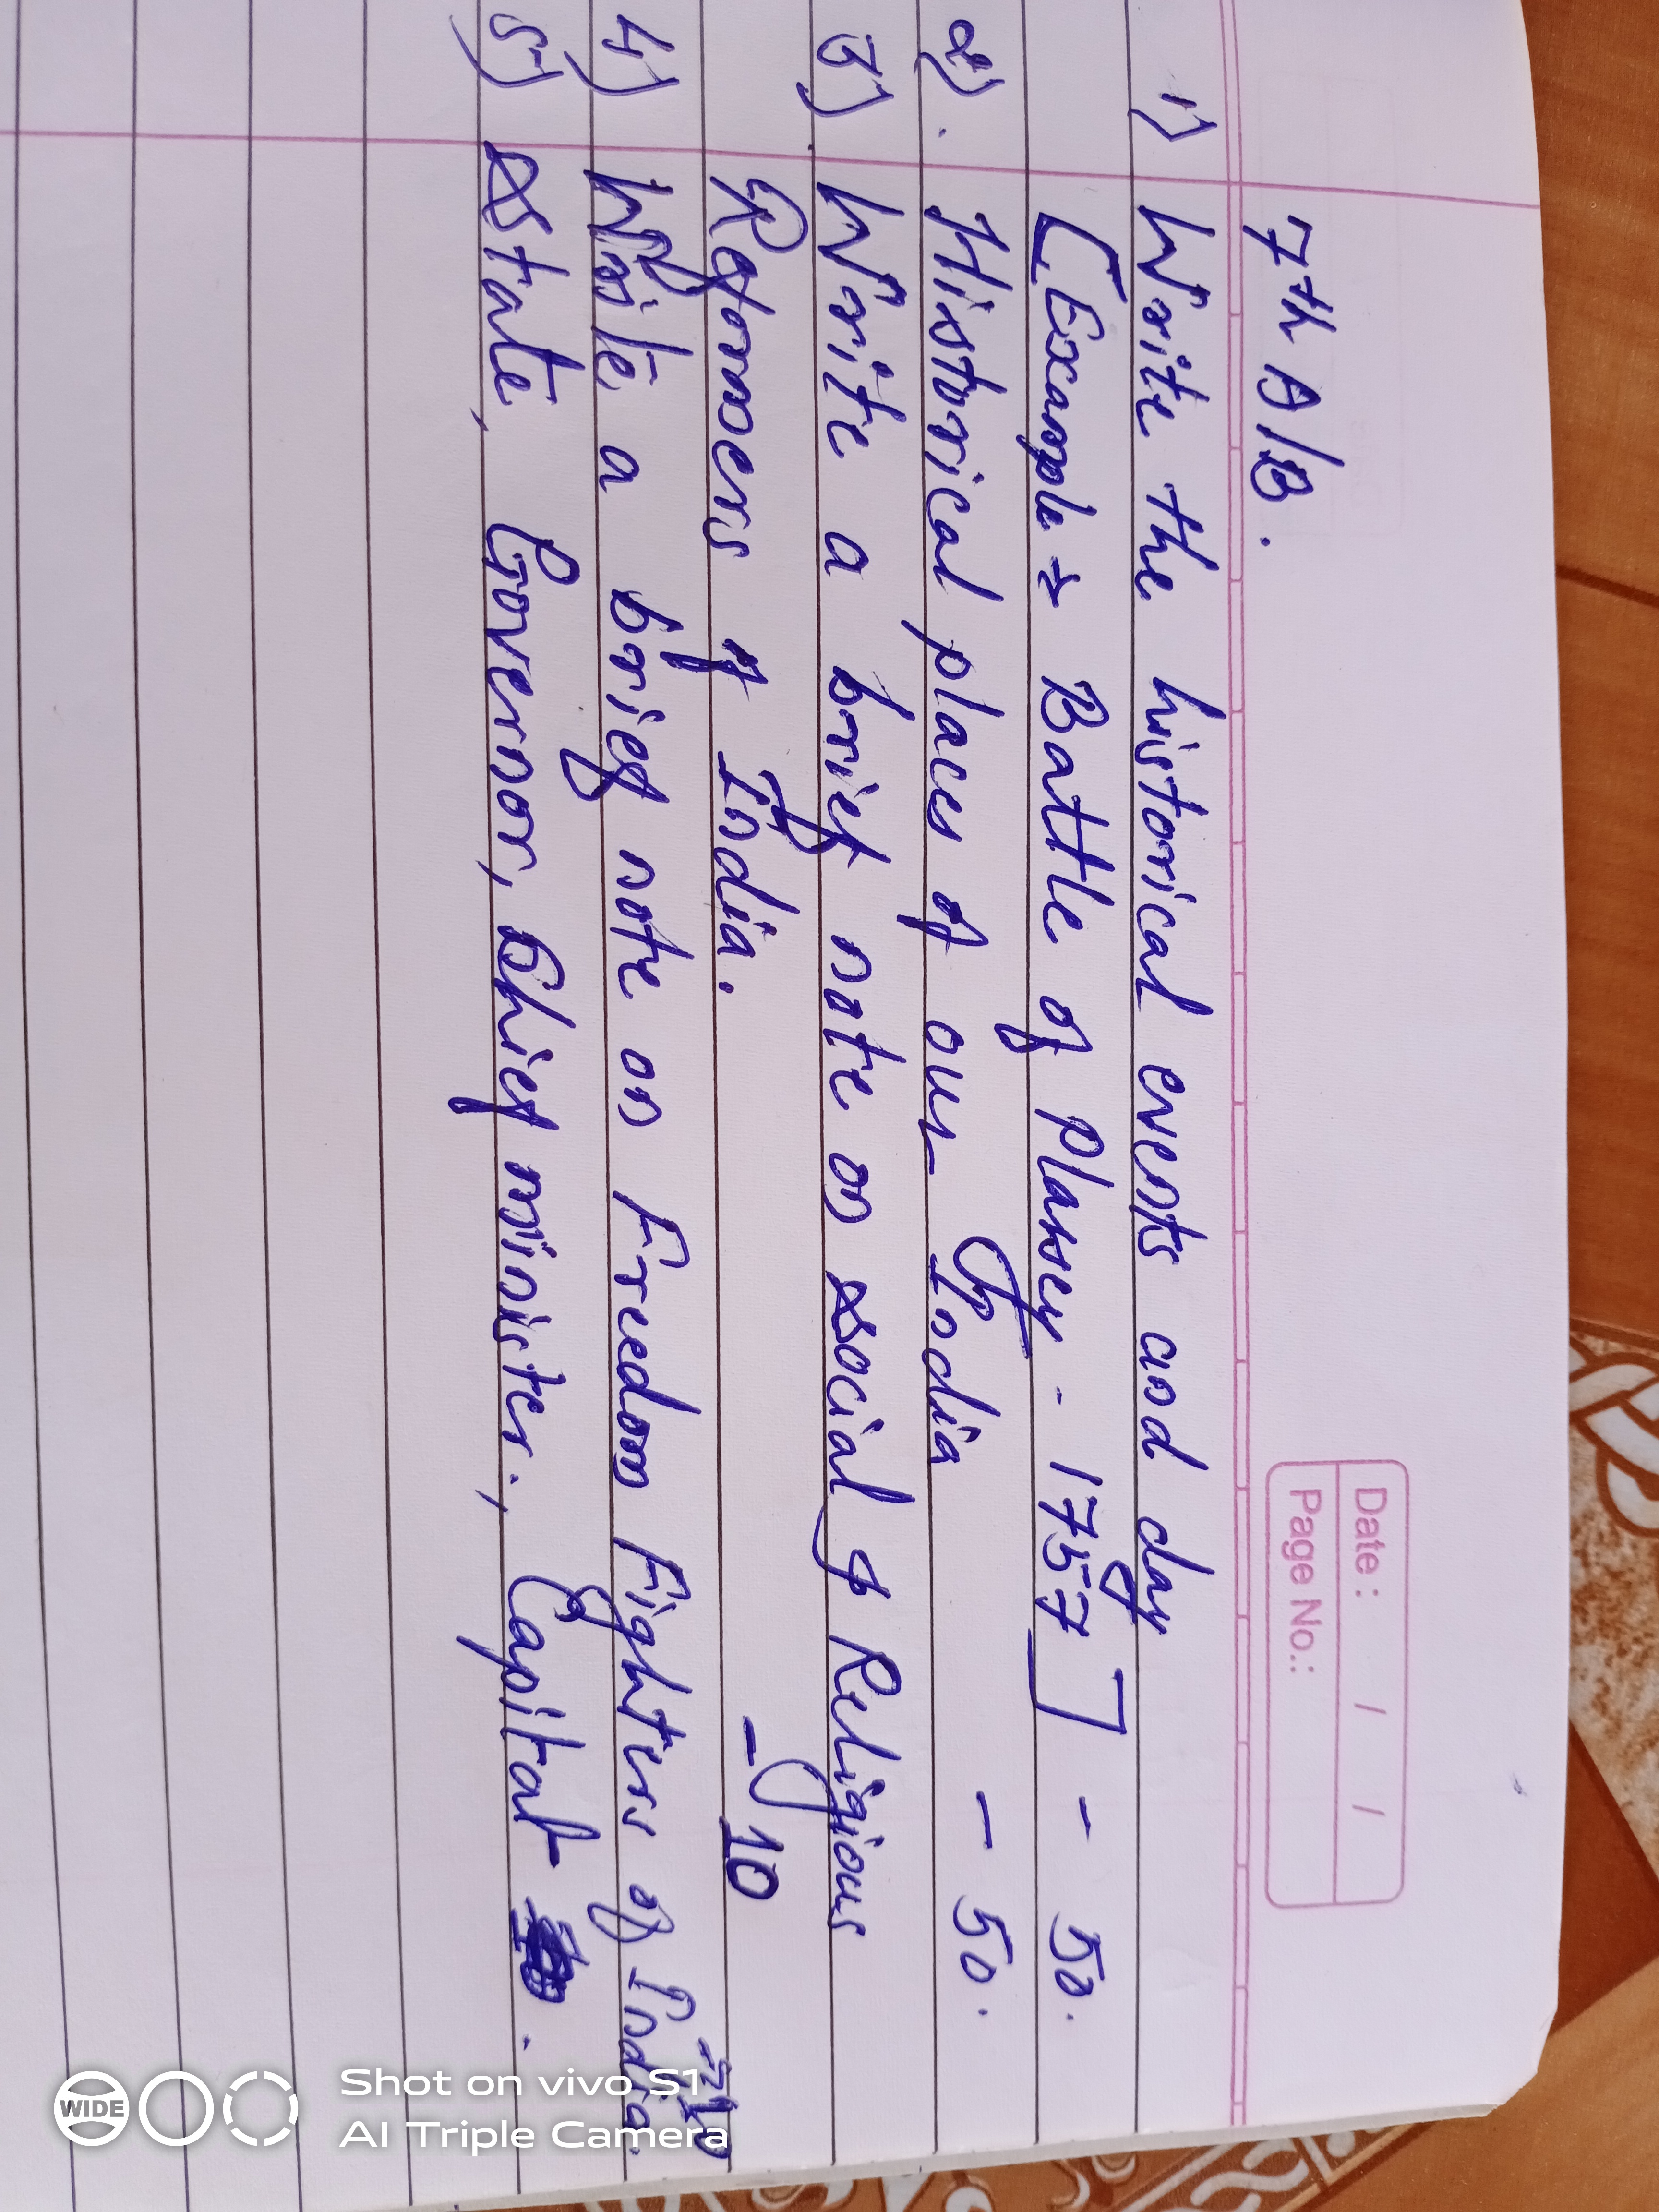 Date: / /
Page No.:
7th A/B.
1) Write the historical events and day
[Example → Battle of Plassey - 1757] - 50.
2). Historical places of our India - 50.
3) Write a brief note on social & Religious
Reformers of India. - 10
4) Write a brief note on Freedom Fighters of India.
5) State, Governor, Chief minister, Capital .
WIDE
Shot on vivo S1
AI Triple Camera